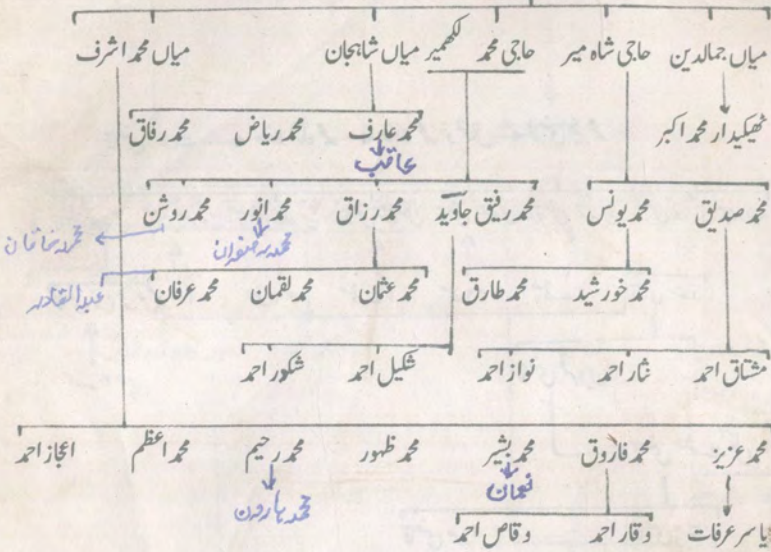 میاں جمالدین حاجی شاہ میر حاجی محمد لکھمیر میاں شاہجان میاں محمد اشرف
ٹھیکیدار محمد اکبر محمد عارف محمد ریاض محمد رفاق
عاقب
محمد صدیق محمد یونس محمد رفیق جاوید محمد رزاق محمد انور محمد روشن
محمد رضوان
محمد خورشید محمد طارق محمد عثمان محمد لقمان محمد عرفان عبدالقادر
مشتاق احمد نثار احمد نواز احمد شکیل احمد شکور احمد
محمد عزیز محمد فاروق محمد بشیر محمد ظہور محمد رحیم محمد اعظم اعجاز احمد
نعمان محمد ہارون
یاسر عرفات وقار احمد وقاص احمد